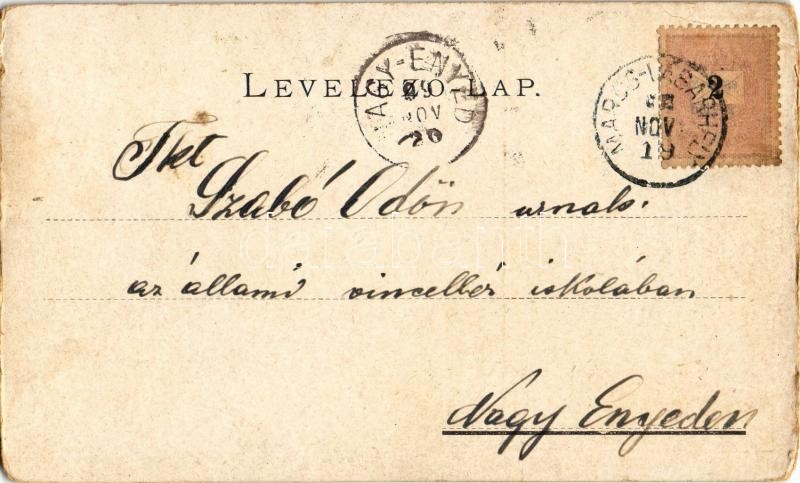 LEVELEZŐ-LAP.
NAGY-ENYED
99
NOV
20
2
MAROS-VÁSÁRHELY
NOV.
19
Tkt
Szabó Ödön urnak.
az állami vinczellér iskolában
Nagy Enyeden
darabanth